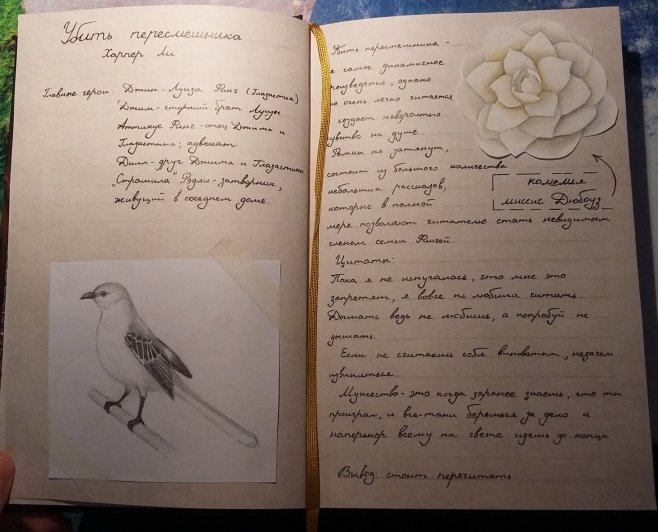 Убить пересмешника
Харпер Ли
Главные герои: Джин-Луиза Финч (Глазастик)
Джим-старший брат Луизы
Аттикус Финч-отец Джима и
Глазастика; адвокат
Дилл-друг Джима и Глазастика
"Страшила" Рэдли-затворник,
живущий в соседнем доме.
Убить пересмешника -
не самое динамичное
произведение, однако
но очень легко читается
создаёт невероятно
чувство на душе.
Роман не затянут,
состоит из большого количества
небольших рассказов,
которые в полной
мере позволяют читателю стать невидимым
членом семьи Финчей
камелия
миссис Дюбоуз
Цитаты:
Пока я не испугалась, что мне это
запретят, я вовсе не любила читать.
Дышать ведь не любишь, а попробуй не
дышать.
Если не считаешь себя виноватым, незачем
извиняться.
Мужество-это когда заранее знаешь, что ты
проиграл, и все-таки берешься за дело и
наперекор всему на свете идешь до конца
Вывод: стоит перечитать